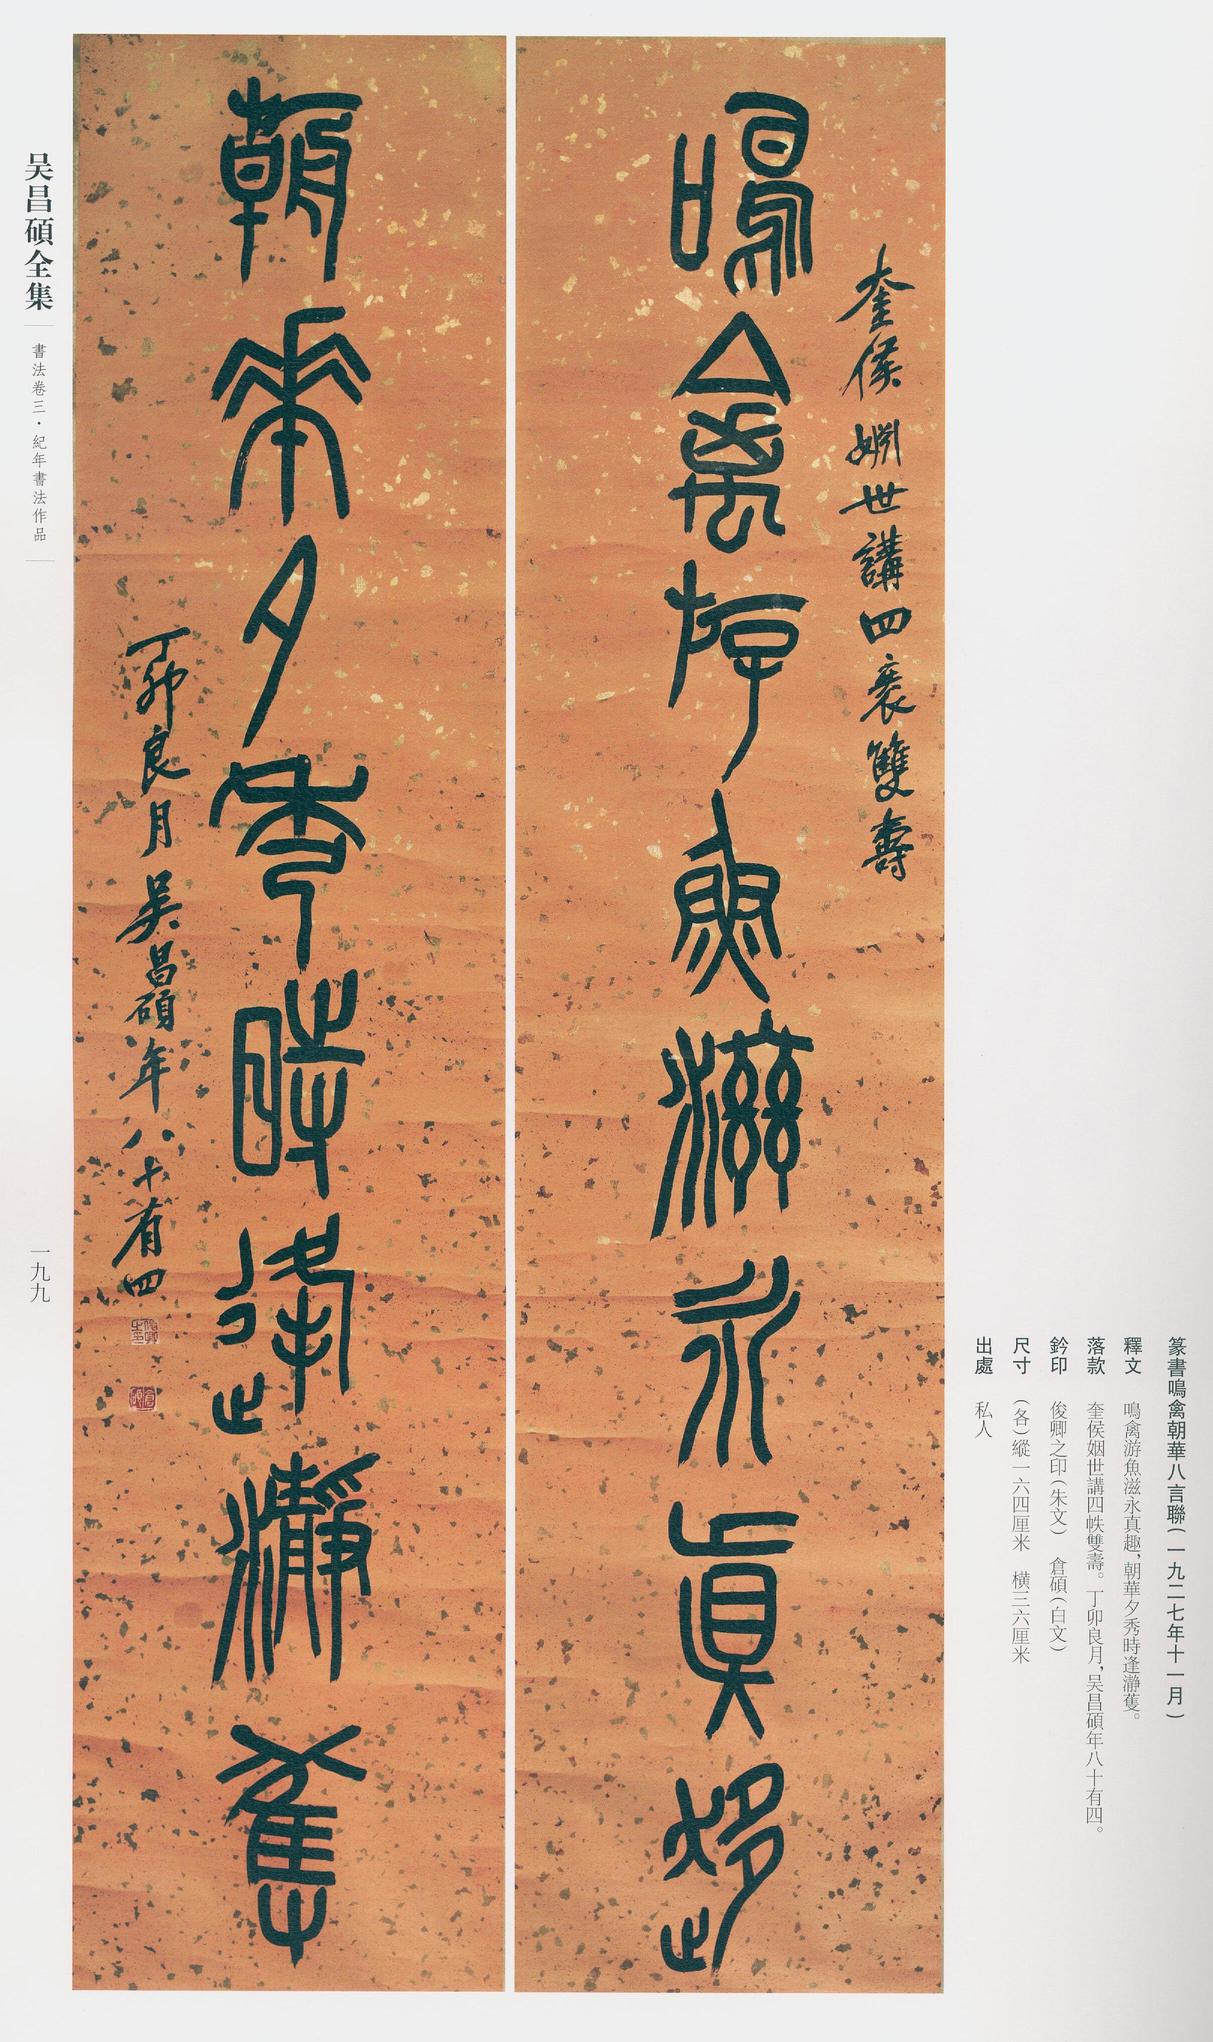 奎侯姻世講四袠雙壽
鳴禽游魚滋永真趣
朝華夕秀時逢瀞蒦
丁卯良月吳昌碩年八十有四
篆書鳴禽朝華八言聯(一九二七年十一月)
釋文 鳴禽游魚滋永真趣,朝華夕秀時逢瀞蒦。
落款 奎侯姻世講四帙雙壽。丁卯良月,吳昌碩年八十有四。
鈐印 俊卿之印(朱文) 倉碩(白文)
尺寸 (各)縱一六四厘米 橫三六厘米
出處 私人
吴昌碩全集
書法卷三·紀年書法作品
一九九